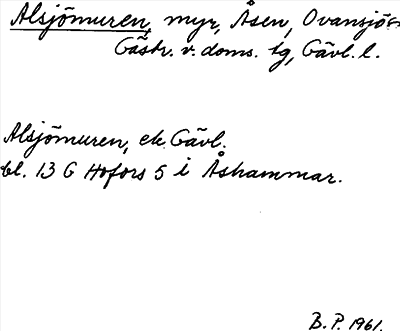 Alsjömuren, myr, Åsen, Ovansjö sn
Gästr. v. doms. tg, Gävl. l.
Alsjömuren, ek. Gävl.
bl. 13 G Hofors 5 i Åshammar.
B. P. 1961.